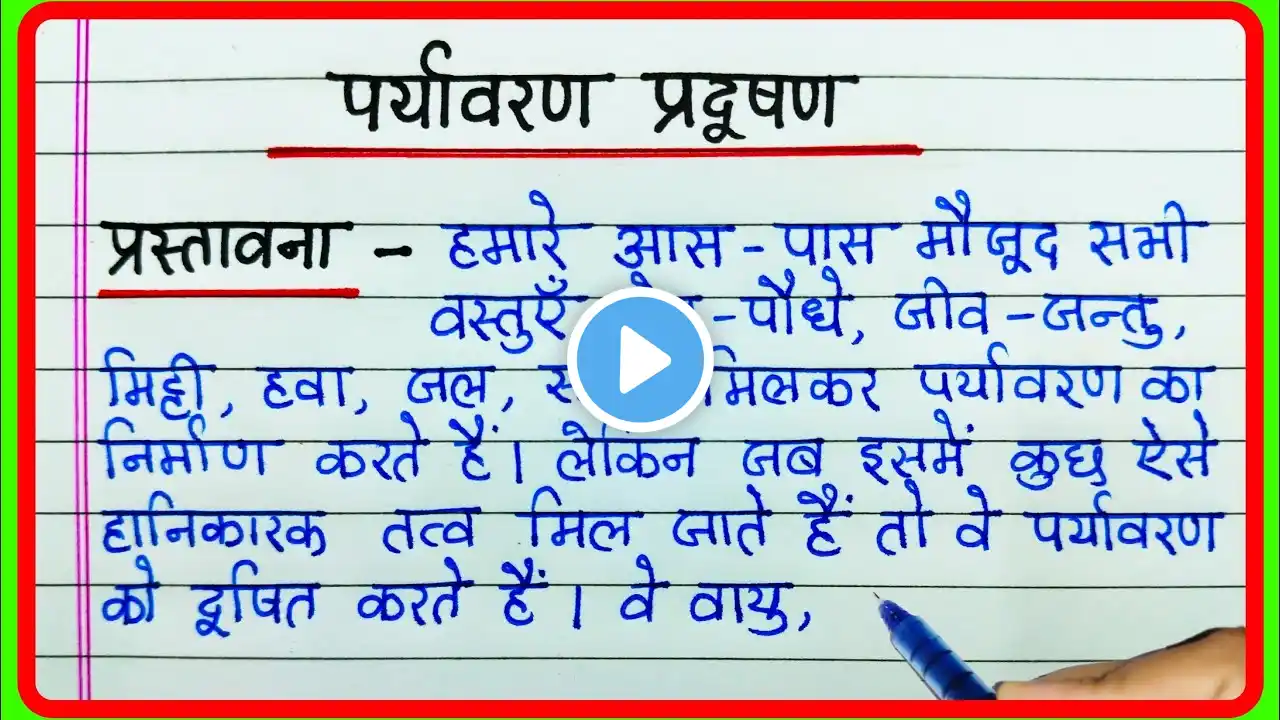 पर्यावरण प्रदूषण
प्रस्तावना - हमारे आस-पास मौजूद सभी
वस्तुएँ -पौधे, जीव-जन्तु,
मिट्टी, हवा, जल, मिलकर पर्यावरण का
निर्माण करते हैं। लेकिन जब इसमें कुछ ऐसे
हानिकारक तत्व मिल जाते हैं तो वे पर्यावरण
को दूषित करते हैं। वे वायु,